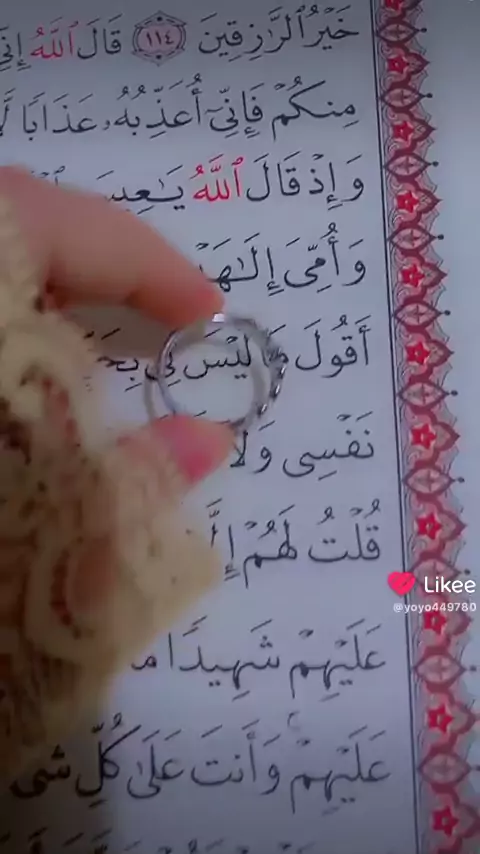 خَيْرُ ٱلرَّٰزِقِينَ ١١٤ قَالَ ٱللَّهُ
مِنكُمْ فَإِنِّىٓ أُعَذِّبُهُۥ عَذَابًا
وَإِذْ قَالَ ٱللَّهُ يَـٰعِيسَى
وَأُمِّىَ إِلَـٰهَيْنِ
أَقُولَ مَا لَيْسَ لِى بِحَقٍّ
نَفْسِى وَلَا
قُلْتُ لَهُمْ إِلَّا
عَلَيْهِمْ شَهِيدًا
عَلَيْهِمْ وَأَنتَ عَلَىٰ كُلِّ
Likee
@yoyo449780